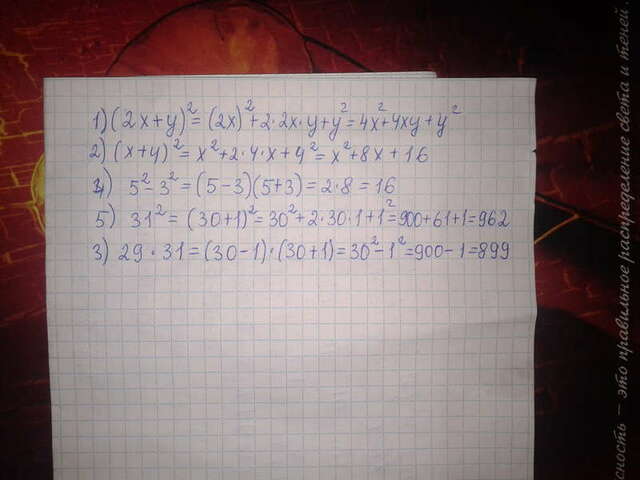 1) (2x+y)²=(2x)²+2·2x·y+y²=4x²+4xy+y²
2) (x+4)²=x²+2·4·x+4²=x²+8x+16
4) 5²-3²=(5-3)(5+3)=2·8=16
5) 31²=(30+1)²=30²+2·30·1+1²=900+61+1=962
3) 29·31=(30-1)·(30+1)=30²-1²=900-1=899
сность – это правильное распределение света и теней.